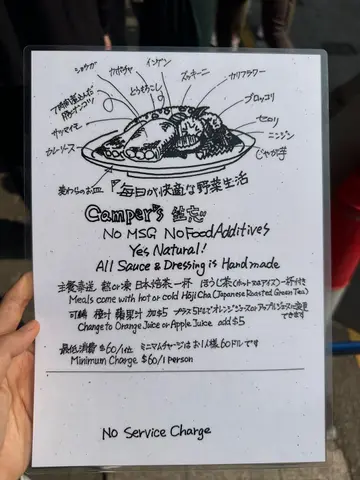 ショウガ
カボチャ
インゲン
ズッキーニ
カリフラワー
とうもろこし
ブロッコリ
7時間煮込んだ
サツマイモ
セロリ
ニンジン
カレーソース
じゃが芋
変わらのお皿
『毎日が快適な野菜生活
Camper's
No MSG No Food Additives
Yes Natural!
All Sauce & Dressing is Handmade
主餐奉送 熱or凍 日本焙茶一杯 ほうじ茶(ホット又はアイス)一杯付き
Meals come with hot or cold Hōji Cha (Japanese Roasted Green Tea)
可轉 橙汁 蘋果汁 加$5 プラス5ドルでオレンジジュースorアップルジュースに変更
できます
Change to Orange Juice or Apple Juice add $5
最低消費 $60/1位 ミニマムチャージはお1人様60ドルです
Minimum Charge $60/1 person
No Service Charge